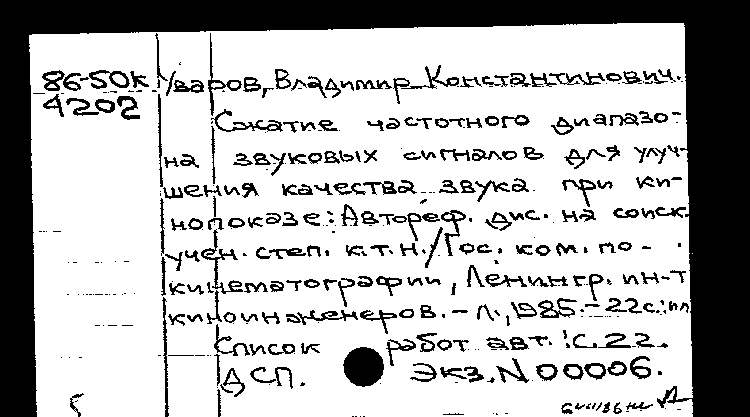 86-50к Уваров, Владимир Константинович.
4202
Сжатие частотного диапазо-
на звуковых сигналов для улуч-
шения качества звука при ки-
нопоказе: Автореф. дис. на соиск.
учен. степ. к.т.н./Гос. ком. по
кинематографии, Ленингр. ин-т
киноинженеров. - Л., 1985. - 22с.: ил
Список работ авт.: с. 22.
ДСП. Экз. N 00006.
5